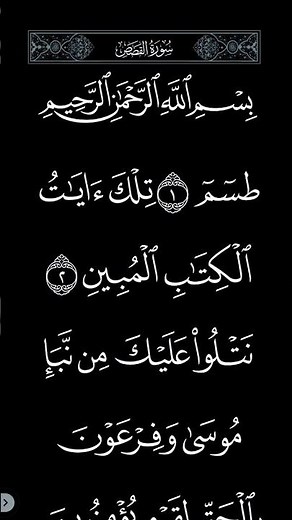 سُورَةُ القَصَصِ
بِسْمِ ٱللَّهِ ٱلرَّحْمَٰنِ ٱلرَّحِيمِ
طسٓمٓ ١ تِلْكَ ءَايَٰتُ
ٱلْكِتَٰبِ ٱلْمُبِينِ ٢
نَتْلُوا۟ عَلَيْكَ مِن نَّبَإِ
مُوسَىٰ وَفِرْعَوْنَ
بِٱلْحَقِّ لِقَوْمٍ يُؤْمِنُونَ